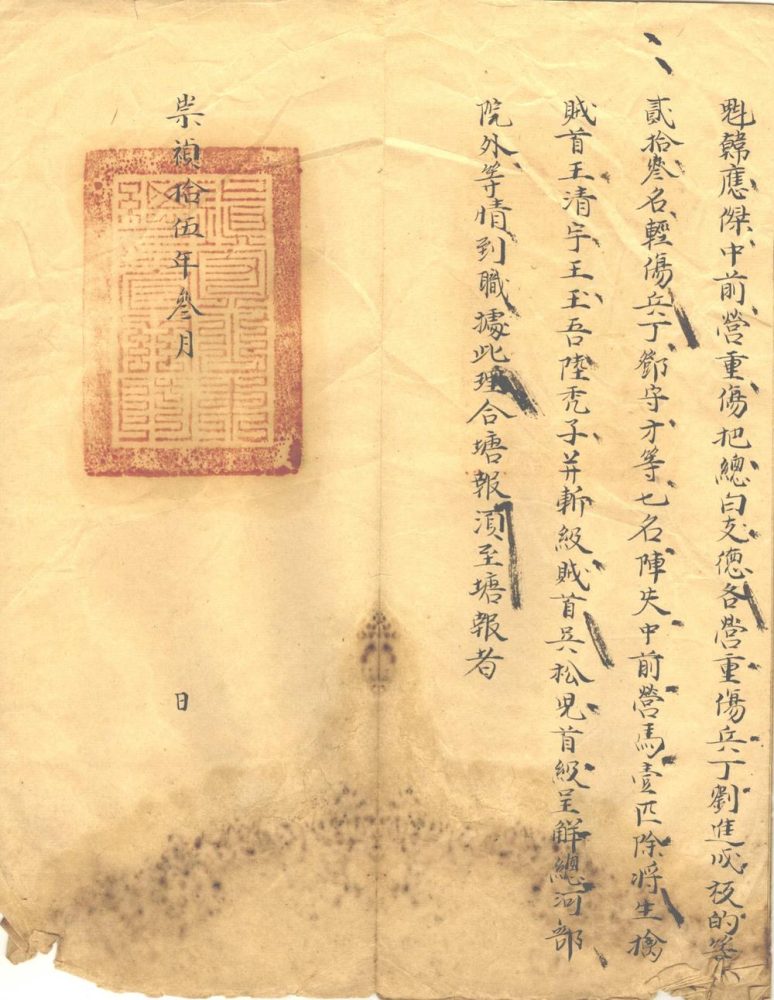 魁韓應傑中前營重傷把總白支德各營重傷兵丁劉進成放的等
貳拾叄名輕傷兵丁鄧守才等七名陣失中前營馬壹匹除將生擒
賊首王清宇王玉吾陸禿子并斬級賊首吳松児首級呈解總河部
院外等情到職據此理合塘報湏至塘報者
崇禎拾伍年叄月
日